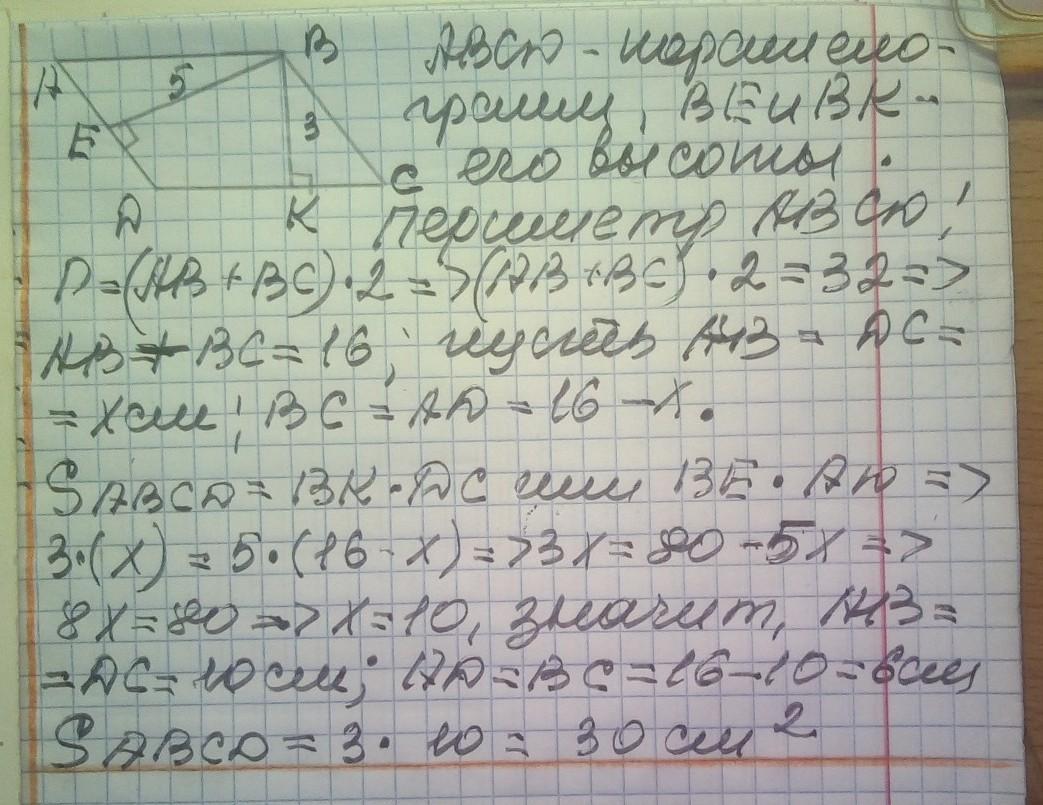 A B 5 E 3 D K C
ABCD - параллело-
грамм, BE и BK -
его высоты.
Периметр ABCD;
P=(AB+BC)·2=>(AB+BC)·2=32=>
AB+BC=16; пусть AB = DC=
= x см; BC = AD = 16 - x.
S ABCD = BK·DC или BE·AD =>
3·(x) = 5·(16 - x)=>3x=80-5x=>
8x=80=>x=10, значит, AB=
=DC=10 см; AD=BC=16-10=6см
S ABCD = 3· 10 = 30 см²